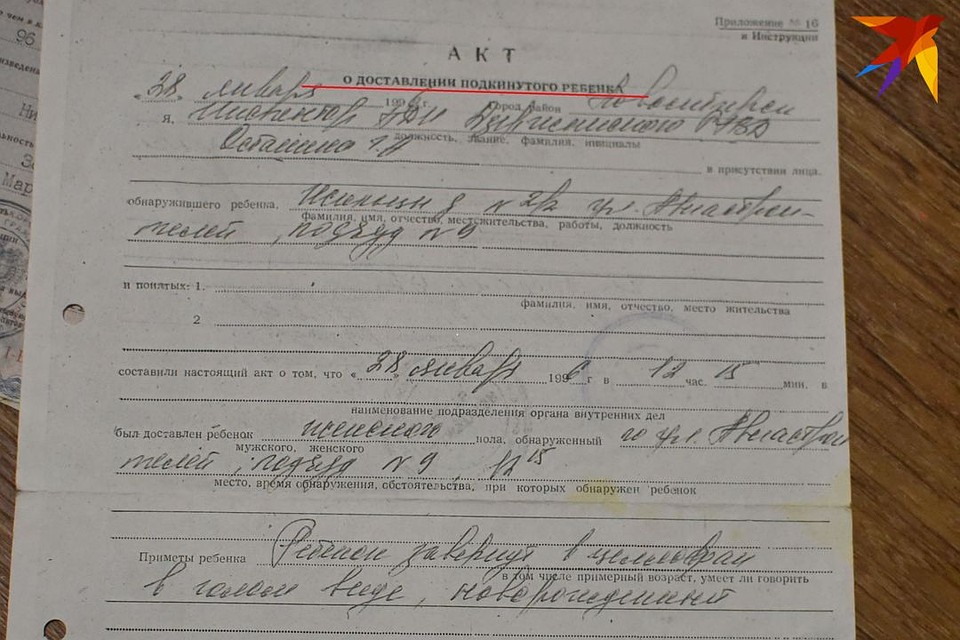 Приложение № 16
к Инструкции
АКТ
О ДОСТАВЛЕНИИ ПОДКИНУТОГО РЕБЕНКА
"28" января 1996 г. Город, район Новосибирск
Я, инспектор Дзержинского РУВД
должность, звание, фамилия, инициалы
в присутствии лица,
обнаружившего ребенка, 2/2 ул. Авиастрои-
фамилия, имя, отчество, местожительства, работы, должность
телей, подъезд № 9
и понятых: 1.
фамилия, имя, отчество, место жительства
2
составили настоящий акт о том, что «28» января 1996 г в 12 час. 15 мин. в
наименование подразделения органа внутренних дел
был доставлен ребенок женского пола, обнаруженный по ул. Авиастрои
мужского, женского
телей, подъезд № 9 12 15
место, время обнаружения, обстоятельства, при которых обнаружен ребенок
Приметы ребенка Ребенок завернут в целлофан
в том числе примерный возраст, умеет ли говорить
в голом виде, новорожденный
96
Мар